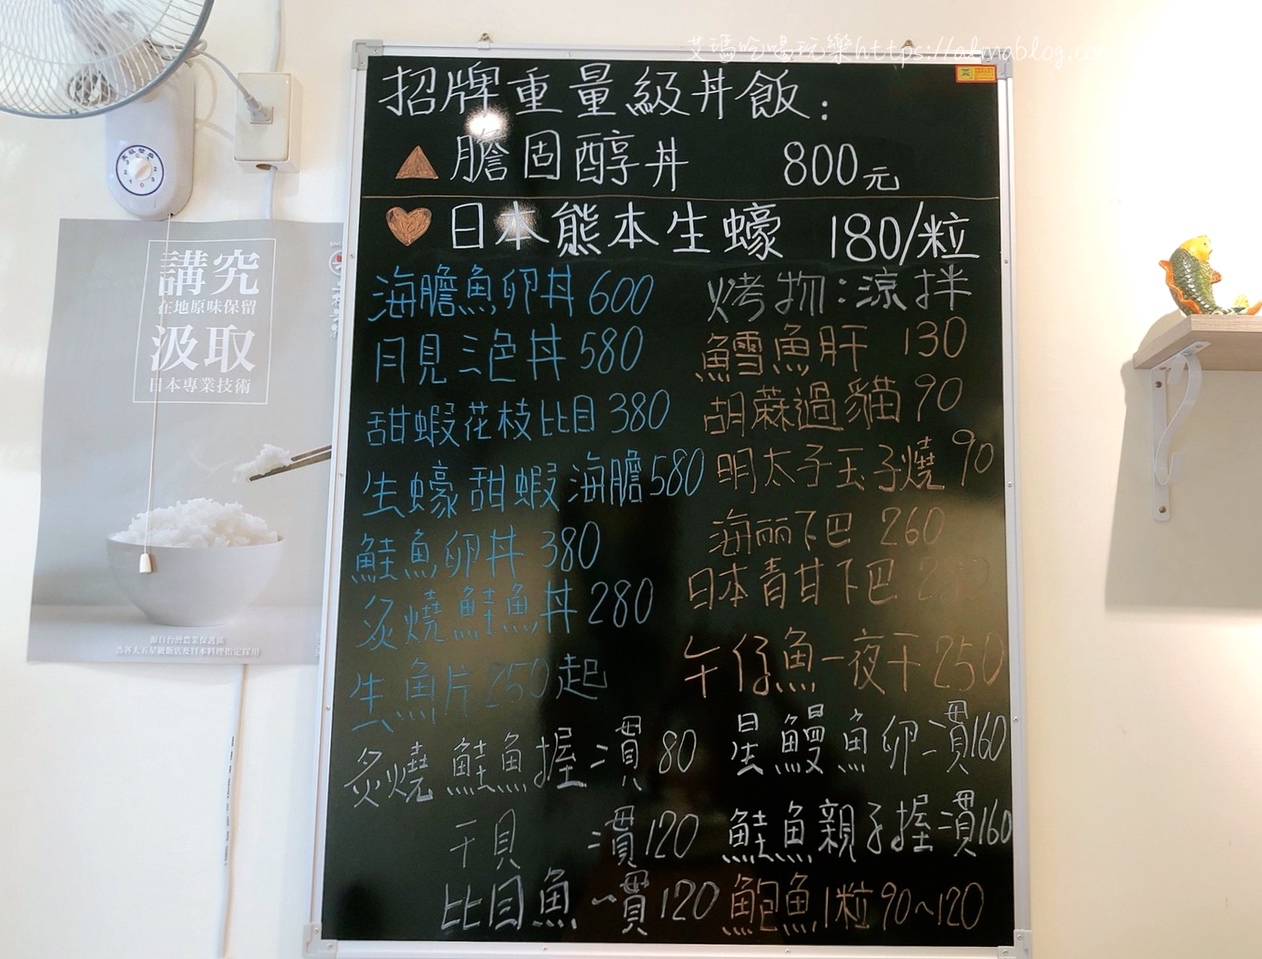 艾瑪吃喝玩樂https://almablog.co
招牌重量級丼飯:
膽固醇丼 800元
日本熊本生蠔 180/粒
海膽魚卵丼 600
月見三色丼 580
甜蝦花枝比目 380
生蠔甜蝦海膽 580
鮭魚卵丼 380
炙燒鮭魚丼 280
生魚片 250起
炙燒鮭魚握 漬 80
干貝 漬 120
比目魚 一貫 120
烤物:涼拌
鱈魚肝 130
胡蔴過貓 90
明太子玉子燒 90
海丽下巴 260
日本青甘下巴
午仔魚一夜干 250
星鰻魚卵 160
鮭魚親子握 160
鮑魚1粒 90~120
講究
在地原味保留
汲取
日本專業技術